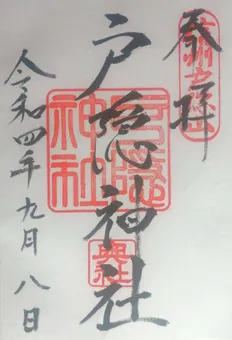 奉拝
戸隠神社
戸隠神社
奥社
令和四年九月八日